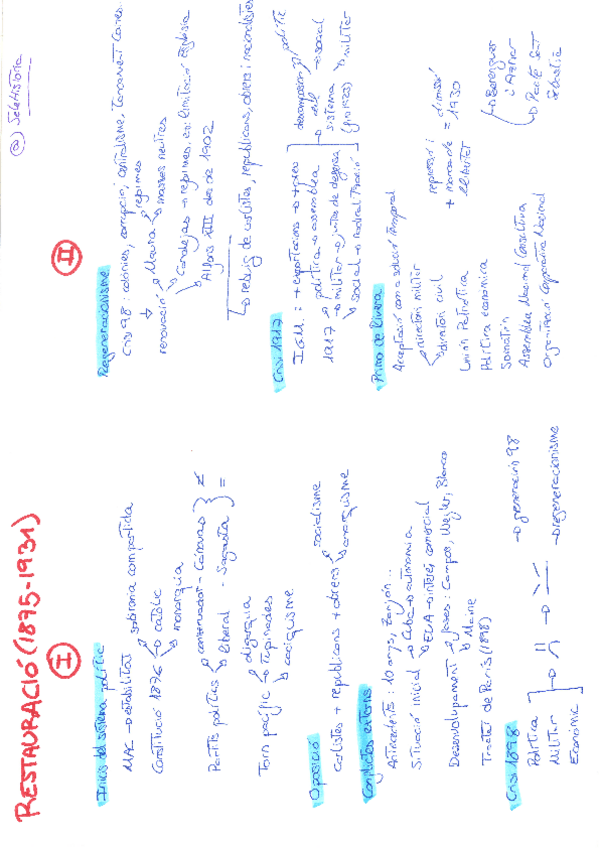 @Selehistoria
RESTAURACIÓ (1875-1931)
I
Inicis del sistema polític
MAC → estabilitat sobirania compartida
Constitució 1876 → catòlic
monarquia
Partits polítics conservador - Cánovas
liberal - Sagasta
oligarquia
Torn pacífic → tupinades
caciquisme
Oposició
Carlistes + republicans + obrers socialisme
anarquisme
Conflictes externs
Antecedents: 10 anys, Zanjón...
Situació inicial Cuba → autonomia
EUA → interés comercial
Desenvolupament fases: Campos, Weyler, Blanco
Maine
Tractat de París (1898)
Crisi 1898
Política → generació 98
Militar
Econòmic → regeneracionisme
II
Regeneracionisme
Crisi 98: colònies, corrupció, centralisme,
renovació Maura reformes
masses neutres
Canalejas → reformes. ex: limitació església
Alfons XIII des de 1902
rebuig de carlistes, republicans, obrers i nacionalistes
Crisi 1917
IGM: + exportacions → + preu
1917 política → assemblea
militar → junta de defensa
social →
descomposició del sistema (fin 1923)
polític
social
militar
Primo de Rivera
Acceptació com a solució temporal
directori militar
directori civil
Unión Patriótica
Política econòmica
Somatén
Assemblea Nacional Consultiva
Organització Corporativa Nacional
repressió i
+ = dimissió 1930
Berenguer i Aznar
Pacte Sant Sebastià